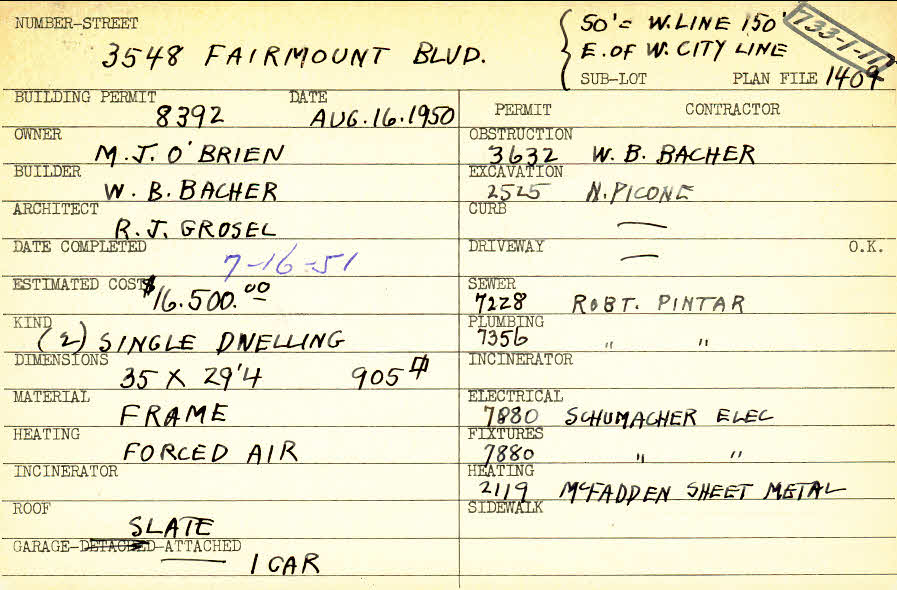 NUMBER-STREET
3548 FAIRMOUNT BLVD.
50' = W. LINE 150'
E. OF W. CITY LINE
733-1-11
SUB-LOT PLAN FILE 1409
BUILDING PERMIT DATE
8392 AUG. 16. 1950
OWNER
M. J. O'BRIEN
BUILDER
W. B. BACHER
ARCHITECT
R. J. GROSEL
DATE COMPLETED
7-16-51
ESTIMATED COST
$16.500.00
KIND
(2) SINGLE DWELLING
DIMENSIONS
35 X 29'4 905
MATERIAL
FRAME
HEATING
FORCED AIR
INCINERATOR
ROOF
SLATE
GARAGE-DETACHED-ATTACHED
1 CAR
PERMIT CONTRACTOR
OBSTRUCTION
3632 W. B. BACHER
EXCAVATION
2525 N. PICONE
CURB
—
DRIVEWAY O.K.
—
SEWER
7228 ROBT. PINTAR
PLUMBING
7356 " "
INCINERATOR
ELECTRICAL
7880 SCHUMACHER ELEC
FIXTURES
7880 " "
HEATING
2119 McFADDEN SHEET METAL
SIDEWALK